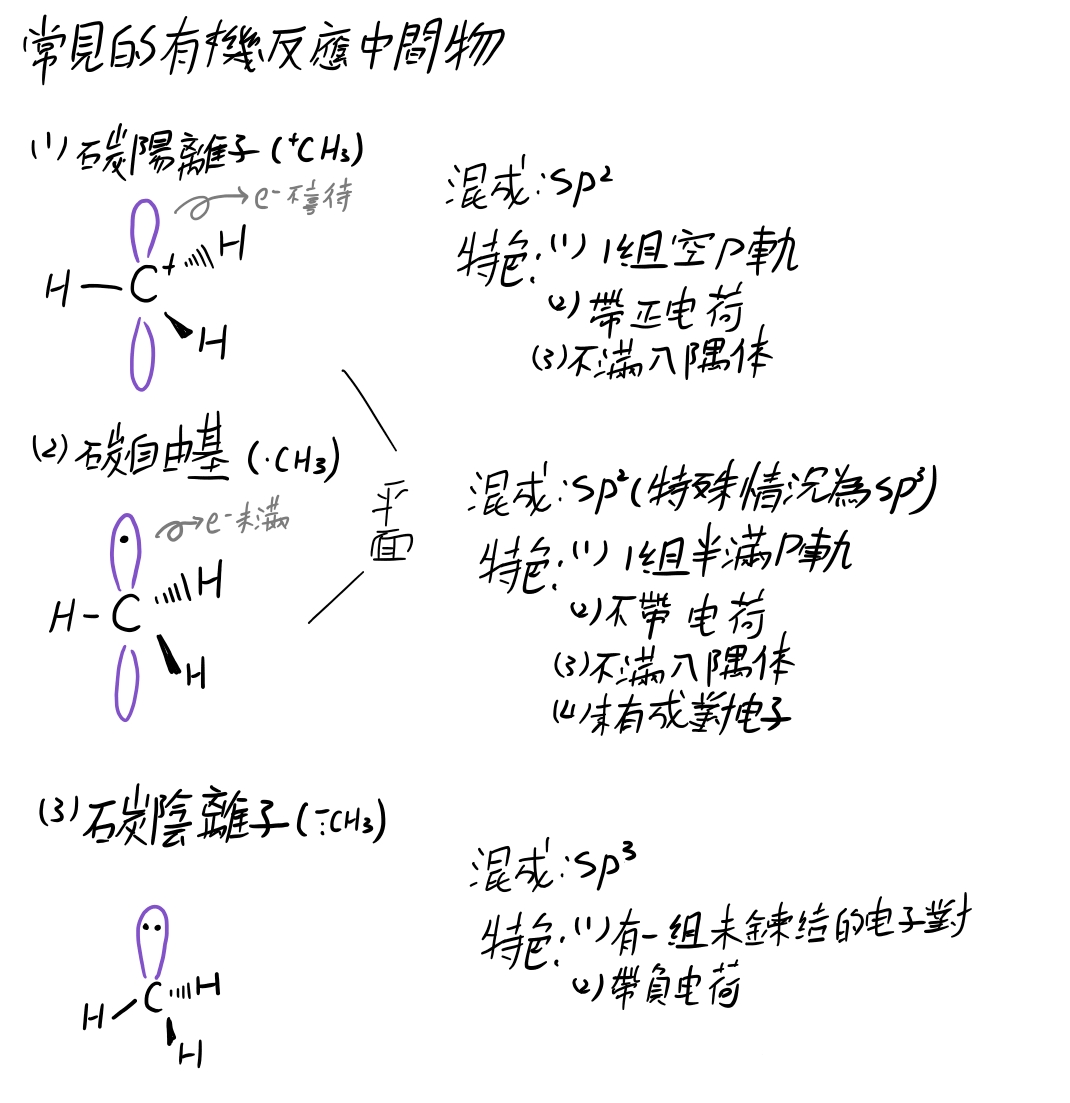 常見的有機反應中間物
(1) 碳陽離子 (⁺CH₃)
e⁻不喜待
H C⁺ H
H
混成:sp²
特色:(1) 1組空p軌
(2) 帶正电荷
(3) 不滿八隅体
平面
(2) 碳自由基 (·CH₃)
e⁻未滿
H C H
H
混成:sp²(特殊情況為sp³)
特色:(1) 1組半滿p軌
(2) 不帶电荷
(3) 不滿八隅体
(4) 未有成對电子
(3) 碳陰離子 (⁻:CH₃)
H C H
H
混成:sp³
特色:(1) 有一組未鍊结的电子對
(2) 帶負电荷